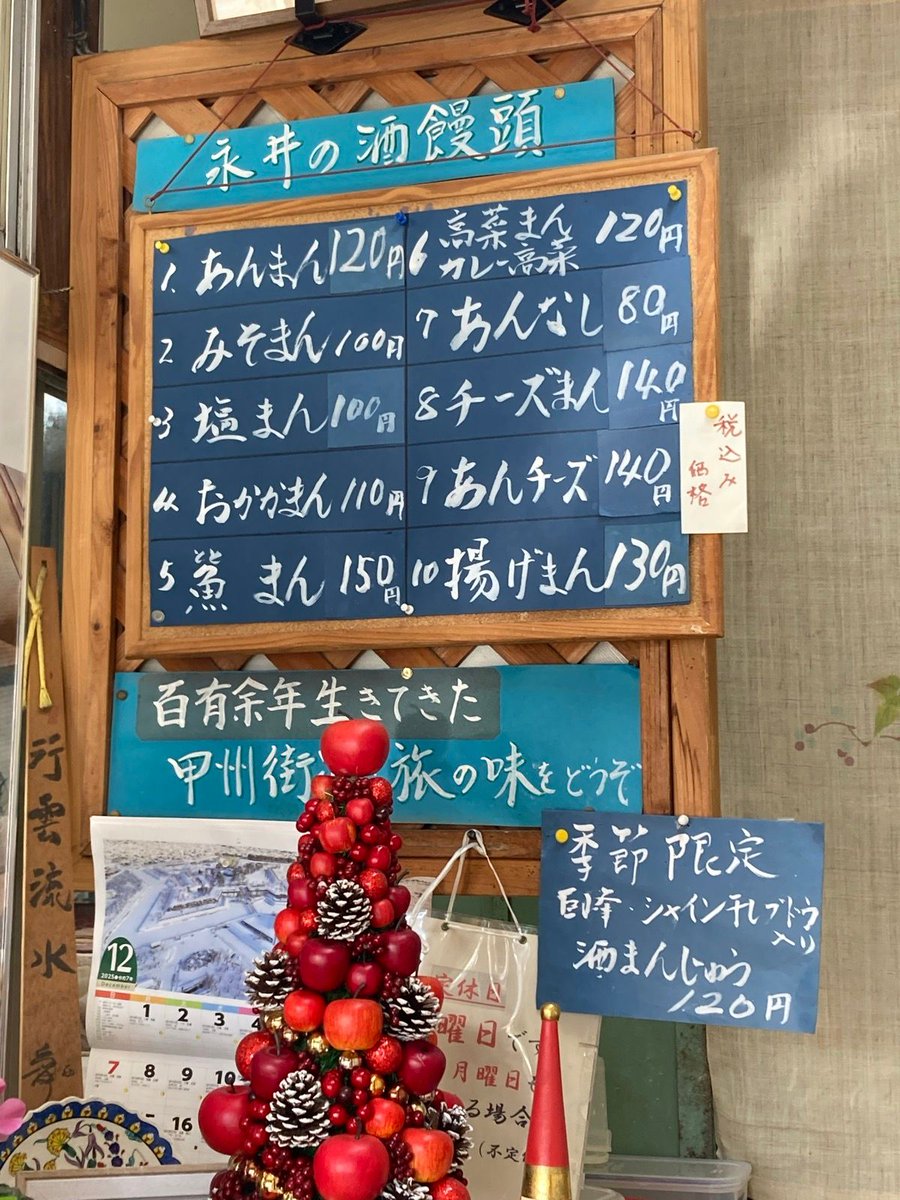 永井の酒饅頭
1. あんまん 120円
2 みそまん 100円
3 塩まん 100円
4. おかかまん 110円
5 まん 150円
6 高菜まん
カレー高菜 120円
7 あんなし 80円
8 チーズまん 140円
9 あんチーズ 140円
10 揚げまん 130円
税込み
価格
百有余年生きてきた
甲州街 旅の味をどうぞ
季節限定
巨峰・シャイン干しブドウ
入り
酒まんじゅう
120円
行雲流水
12
2025 令和7年
December
1 2 3 4
7 8 9 10
16
定休日
曜日です
月曜日
る場合
(不定